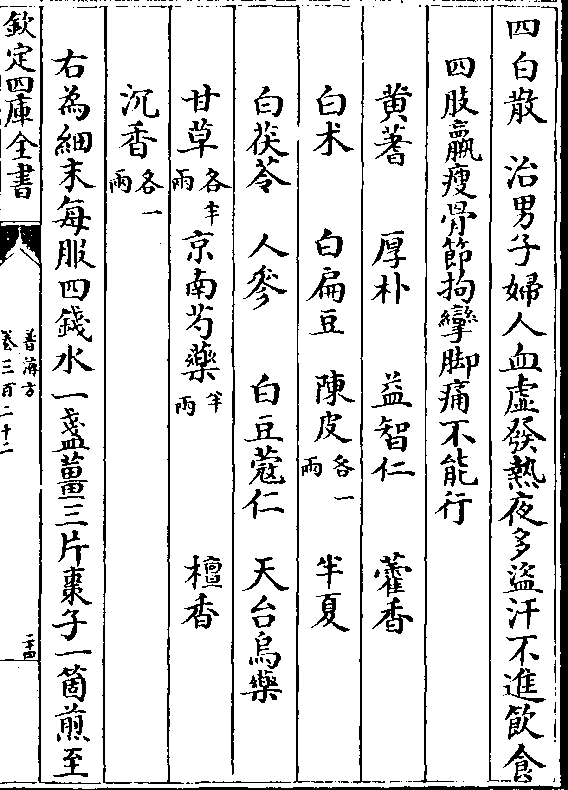 四白散　治男子婦人血虚發熱夜多盜汗不進飲食
四肢羸瘦骨節拘攣脚痛不能行
黄蓍　厚朴　益智仁　藿香
白术　白扁豆　陳皮各一兩　半夏
白茯苓　人參　白豆蔻仁　天台烏藥
甘草各半兩　京南芍藥半兩　檀香
沉香各一兩
右為細末每服四錢水一盞薑三片棗子一箇煎至
欽定四庫全書
普濟方
卷三百二十二
二十四